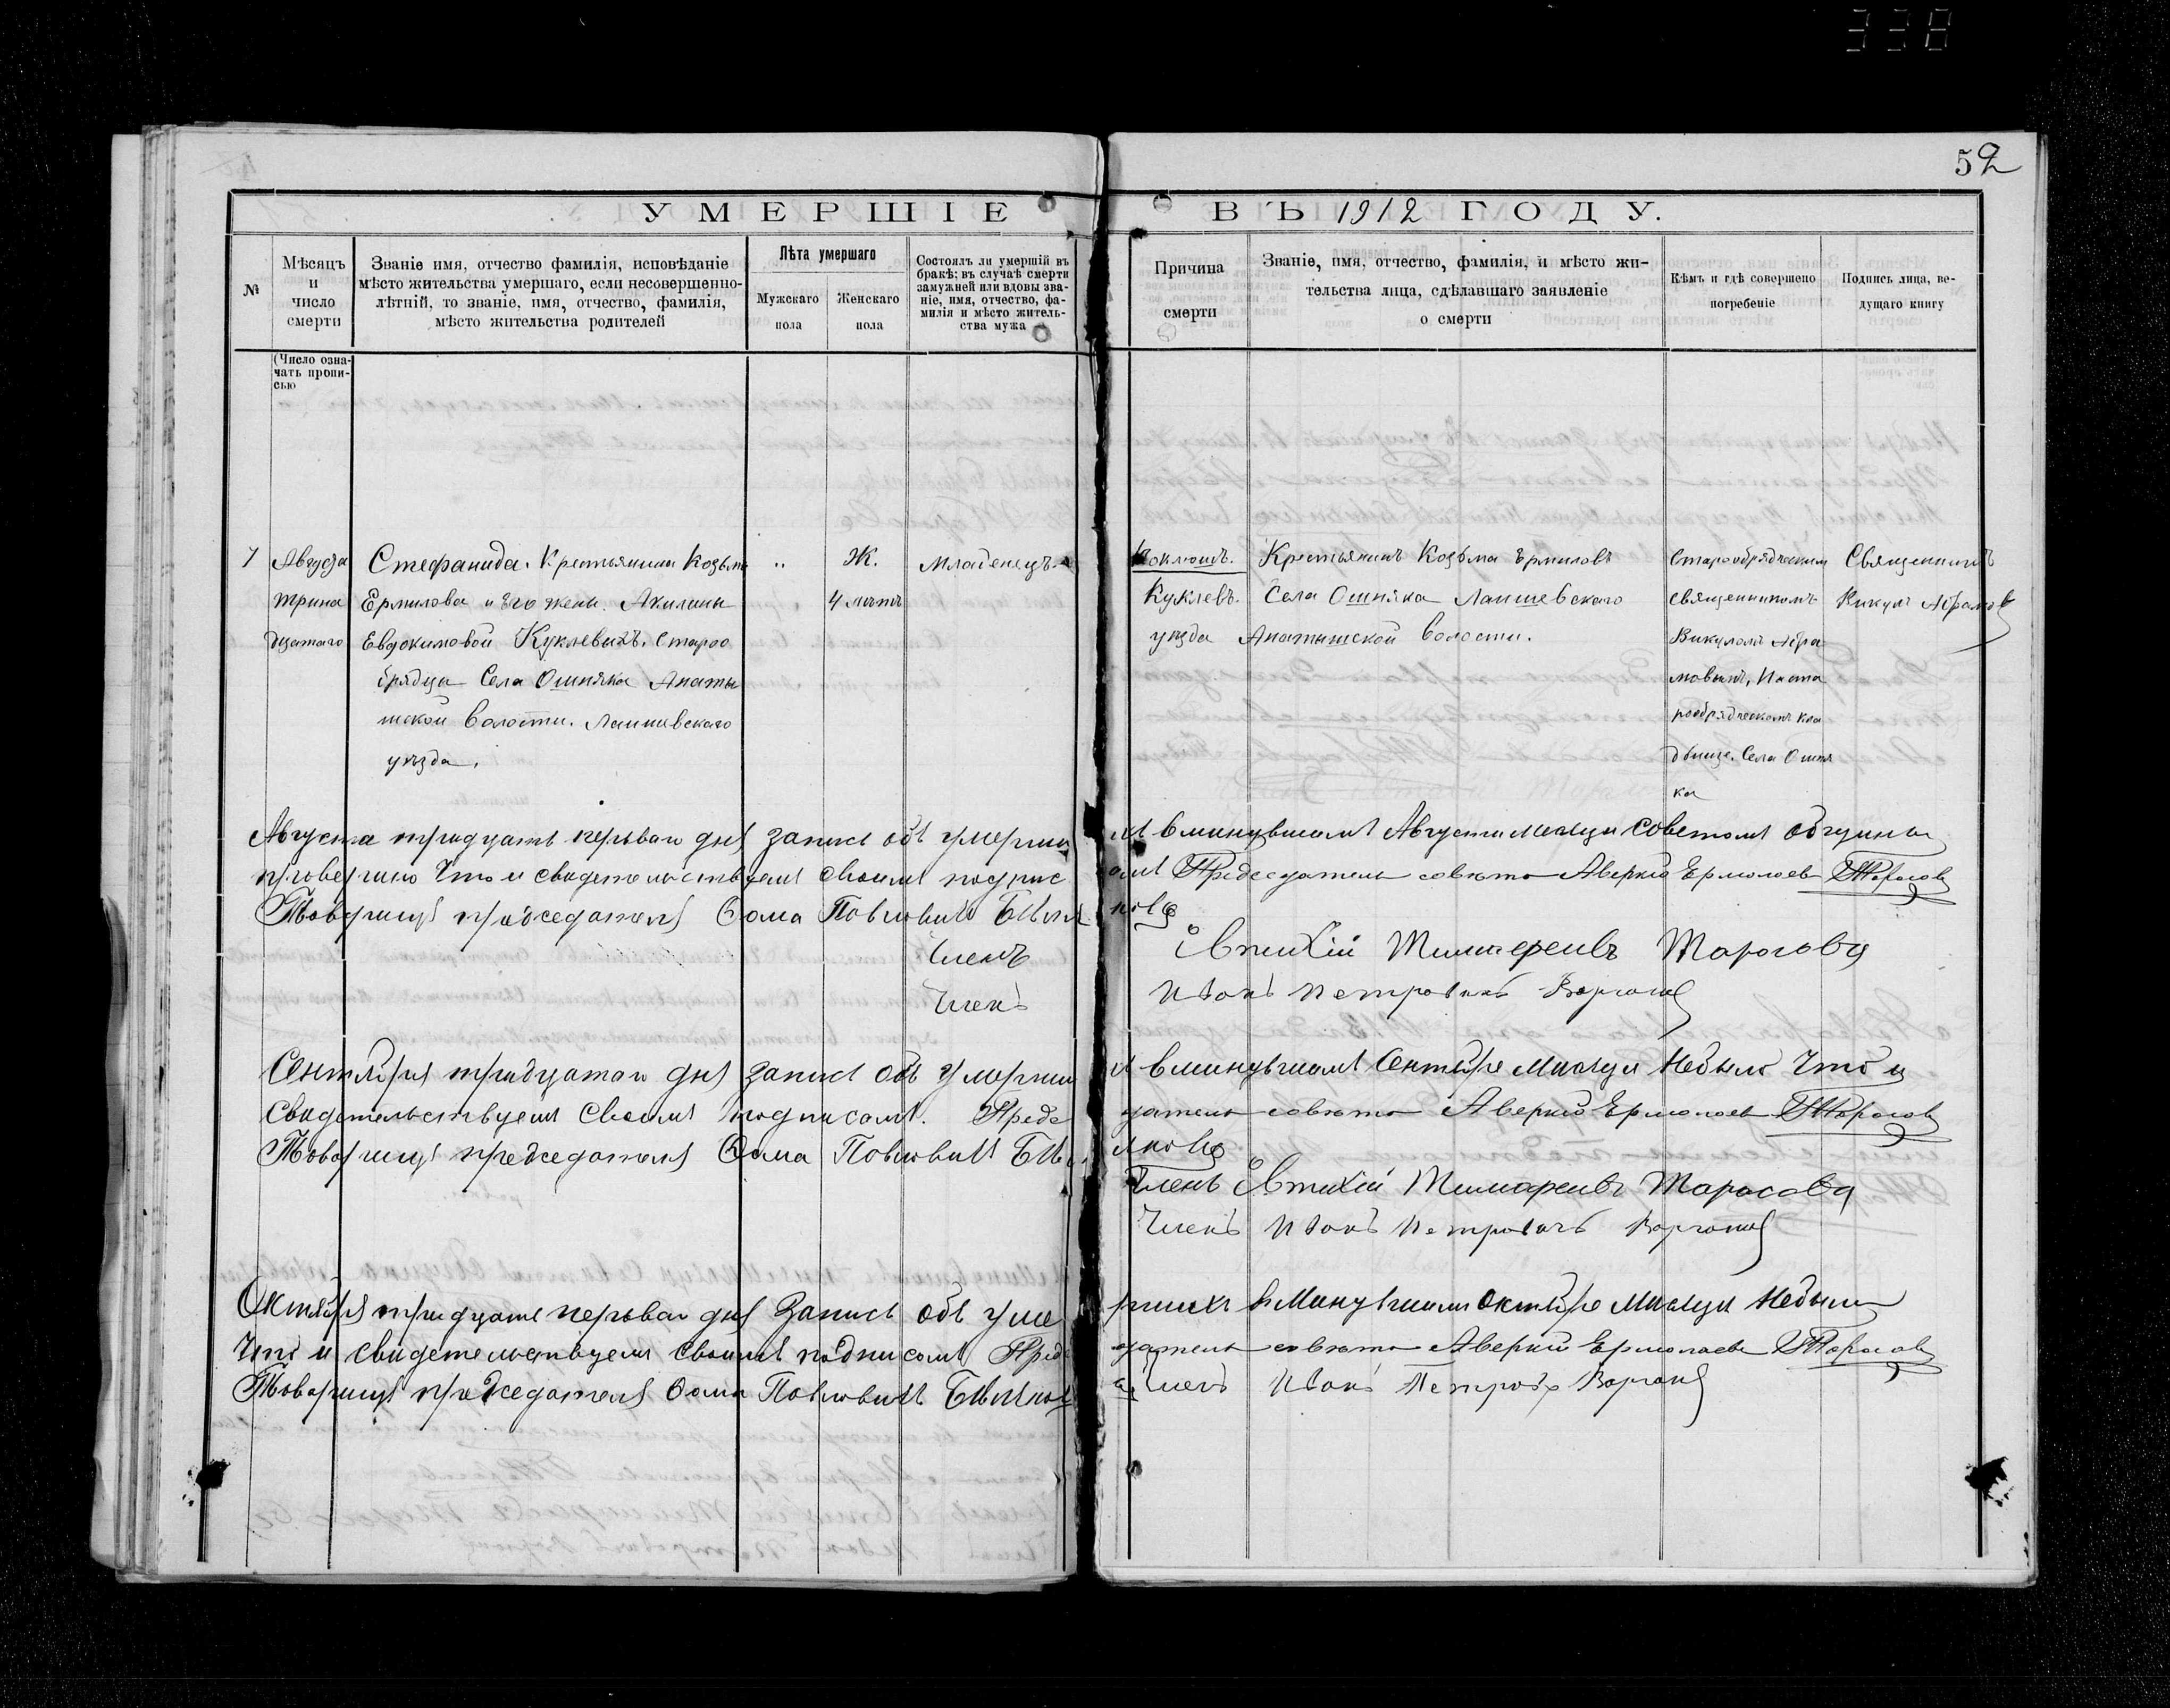 338
52
УМЕРШІЕ
ВЪ 1912 ГОДУ.
№
Мѣсяцъ
и
число
смерти
Званіе имя, отчество фамилія, исповѣданіе
мѣсто жительства умершаго, если несовершенно-
лѣтній, то званіе, имя, отчество, фамилія,
мѣсто жительства родителей
Лѣта умершаго
Мужскаго
пола
Женскаго
пола
Состоялъ ли умершій въ
бракѣ: въ случаѣ смерти
замужней или вдовы зва-
ніе, имя, отчество, фа-
милія и мѣсто житель-
ства мужа
Причина
смерти
Званіе, имя, отчество, фамилія, и мѣсто жи-
тельства лица, сдѣлавшаго заявленіе
о смерти
Кѣмъ и гдѣ совершено
погребеніе
Подпись лица, ве-
дущаго книгу
(Число озна-
чать пропи-
сью
7
Августа
трина
дцатаго
Стефанида. Крестьянина Козьмы
Ермилова и Его жены. Акилины
Евдокимовой Куклевыхъ. Старо
брядца Села Ошняка Анаты
шской волости. Лаишевскаго
уѣзда.
„
Ж.
4 лѣтъ
Младенецъ.
Коклюшъ.
Крестьянинъ Козьма Ермиловъ
Куклевъ. Села Ошняка Лаишевскаго
уѣзда Анатышской волости.
Старообрядческим
священникомъ
Викуломъ Абра
мовымъ, На ста
рообрядческомъ кла
дбище. Села Ошня
ка
Священникъ
Викулъ Абрамов
Августа тридцать перваго дня запись объ умерши
хъ в минувшимъ Августи месяци советомъ общины
проверино Что и свидетельствуемъ своимъ подпис
омъ Председатель совета Аверкiй Ермолаев Тарасов
Товарищъ председателя Фома Повловичъ
Членъ Евтихій Тимафеивъ Тарасовъ
Членъ Иванъ Петровичъ
Сентября тридцатаго дня запись объ умерши
хъ в минувшимъ Сентябре Мисяци Небыло Что и
Свидетельствуемъ Своимъ подписомъ. Предсе
датель совета Аверкiй Ермолаев Тарасов
Товарищъ председателя Фома Повловичъ
Членъ Евтихій Тимафеивъ Тарасовъ
Членъ Иванъ Петровичъ
Октября тридцать перваго дня Запись объ уме
ршихъ в Минувшимъ Октябре Мисяци Небыло
Что и свидетельствуемъ своимъ подписомъ Предсе
датель совета Аверкiй Ермолаев Тарасов
Товарищъ председателя Фома Повловичъ
Членъ Иванъ Петровъ